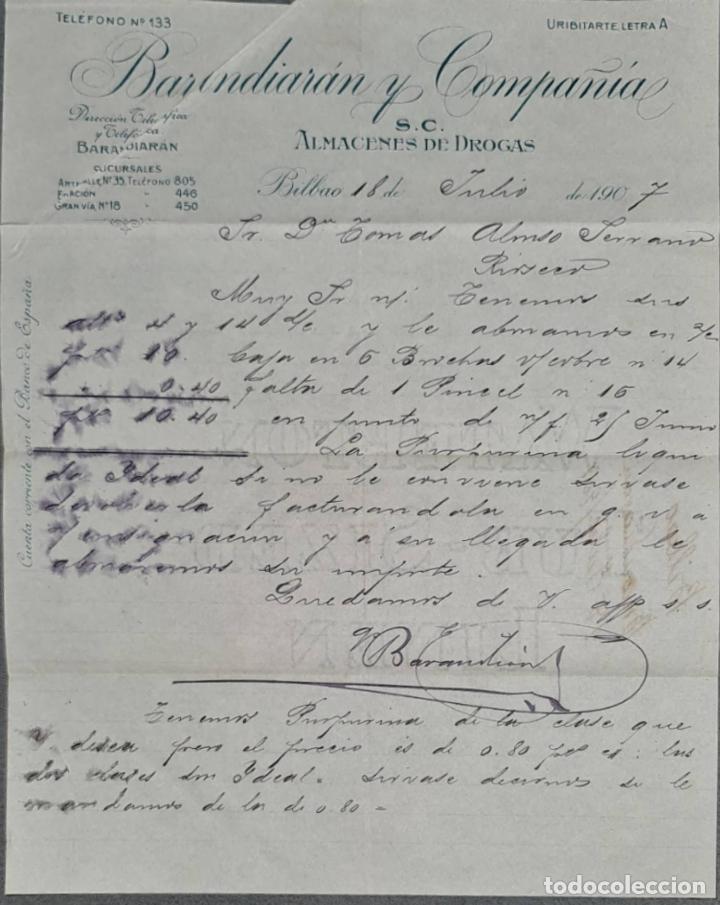 TELÉFONO Nº 133
URIBITARTE, LETRA A
Barandiarán y Compañía
S.C.
ALMACENES DE DROGAS
Dirección Telegráfica
y Telefónica
BARANDIARÁN
SUCURSALES
ARTECALLE Nº 35, TELÉFONO 805
ESTACIÓN " 446
GRAN VÍA, Nº 18 " 450
Bilbao 18 de Julio de 1907
Sr. Dn Tomas Alonso Serrano
Rioseco
Cuenta corriente con el Banco de España.
Muy Sr n/. Tenemos sus
4 y 14 d/c y le abonamos en s/c
10. Caja en 6 Brochas v/cobre n 14
0.40 falta de 1 Pincel n 16
10.40 en punto de n/f 25 Junio
La Purpurina liqui
da Ideal si no le conviene sirvase
devolverla facturandola en g. v. a
consignacion y á su llegada le
abonaremos su importe.
Quedamos de V. affmo s. s.
Barandiarán
Tenemos Purpurina de la clase que
V. desea pero el precio es de 0.80 : las
dos clases son Ideal. Sirvase decirnos si le
mandamos de la de 0.80 =
todocoleccion.net